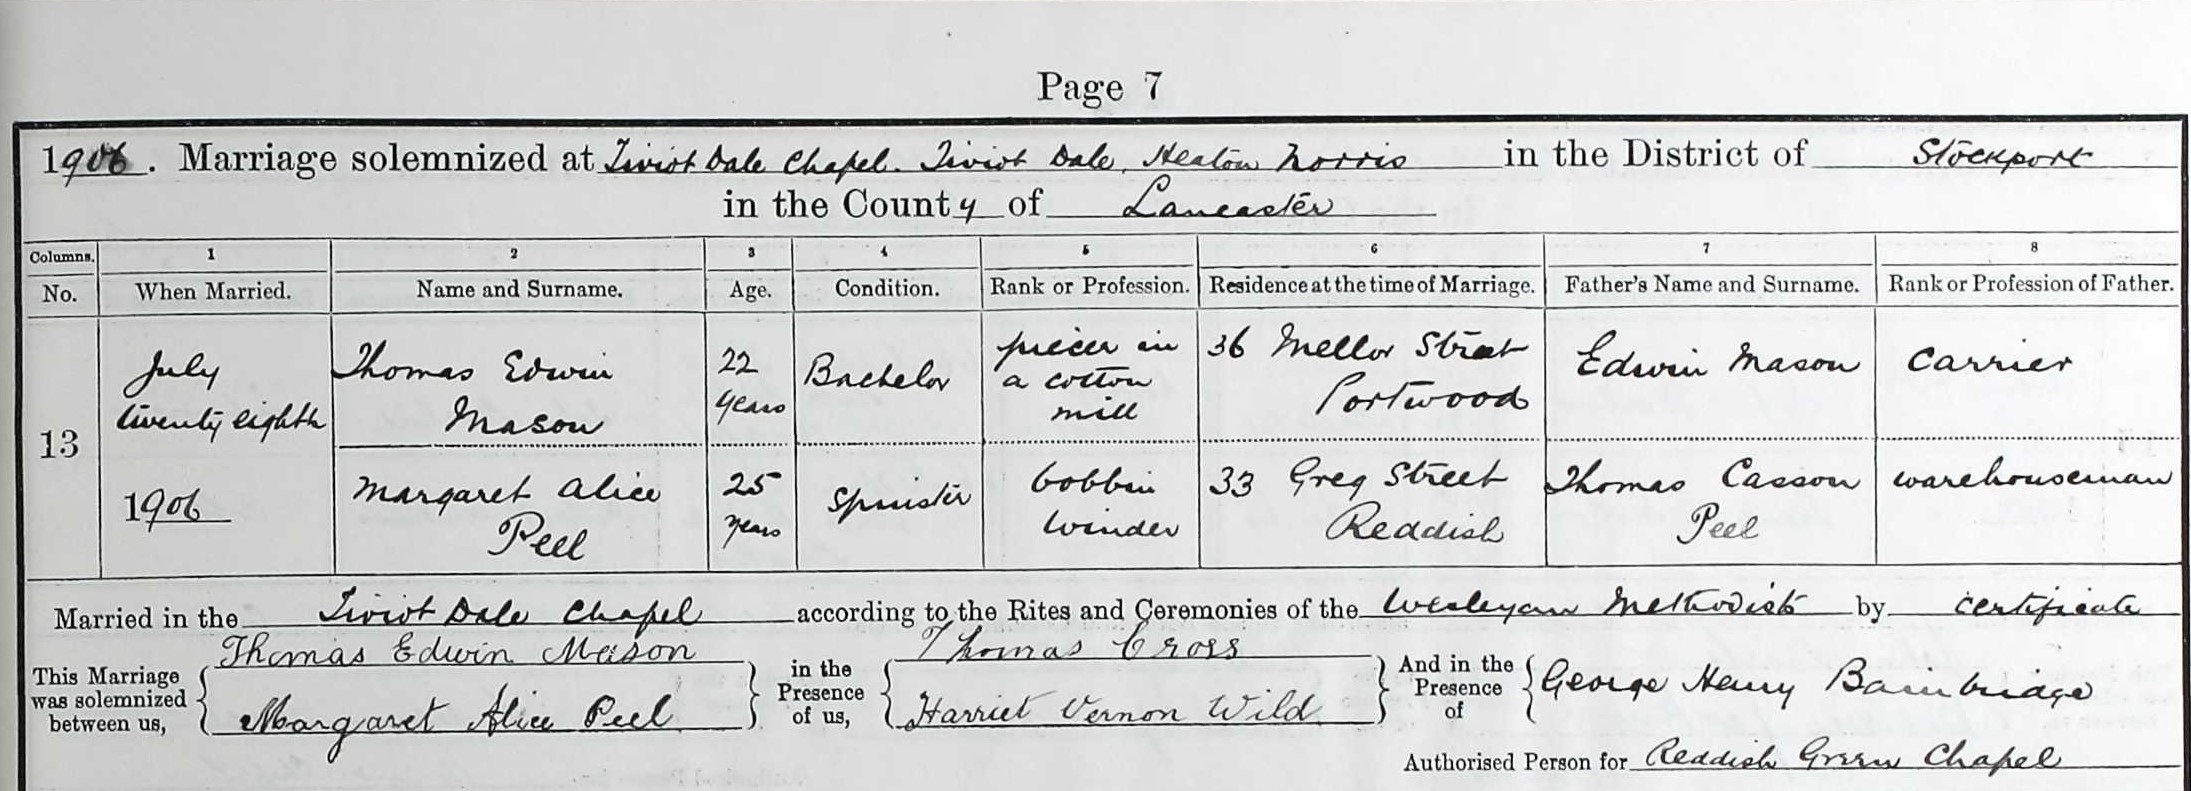 Page 7
1906. Marriage solemnized at Tiviot Dale Chapel. Tiviot Dale, Heaton Norris in the District of Stockport
in the County of Lancaster
Columns. 1 2 3 4 5 6 7 8
No. When Married. Name and Surname. Age. Condition. Rank or Profession. Residence at the time of Marriage. Father's Name and Surname. Rank or Profession of Father.
13
July
twenty eighth
1906
Thomas Edwin
Mason
22
years
Bachelor
piecer in
a cotton
mill
36 Mellor Street
Portwood
Edwin Mason
Carrier
Margaret Alice
Peel
25
years
Spinster
bobbin
winder
33 Greg Street
Reddish
Thomas Casson
Peel
warehouseman
Married in the Tiviot Dale Chapel according to the Rites and Ceremonies of the Wesleyan Methodists by certificate
This Marriage
was solemnized
between us,
Thomas Edwin Mason
Margaret Alice Peel
in the
Presence
of us,
Thomas Cross
Harriet Vernon Wild
And in the
Presence
of
George Henry Bainbridge
Authorised Person for Reddish Green Chapel